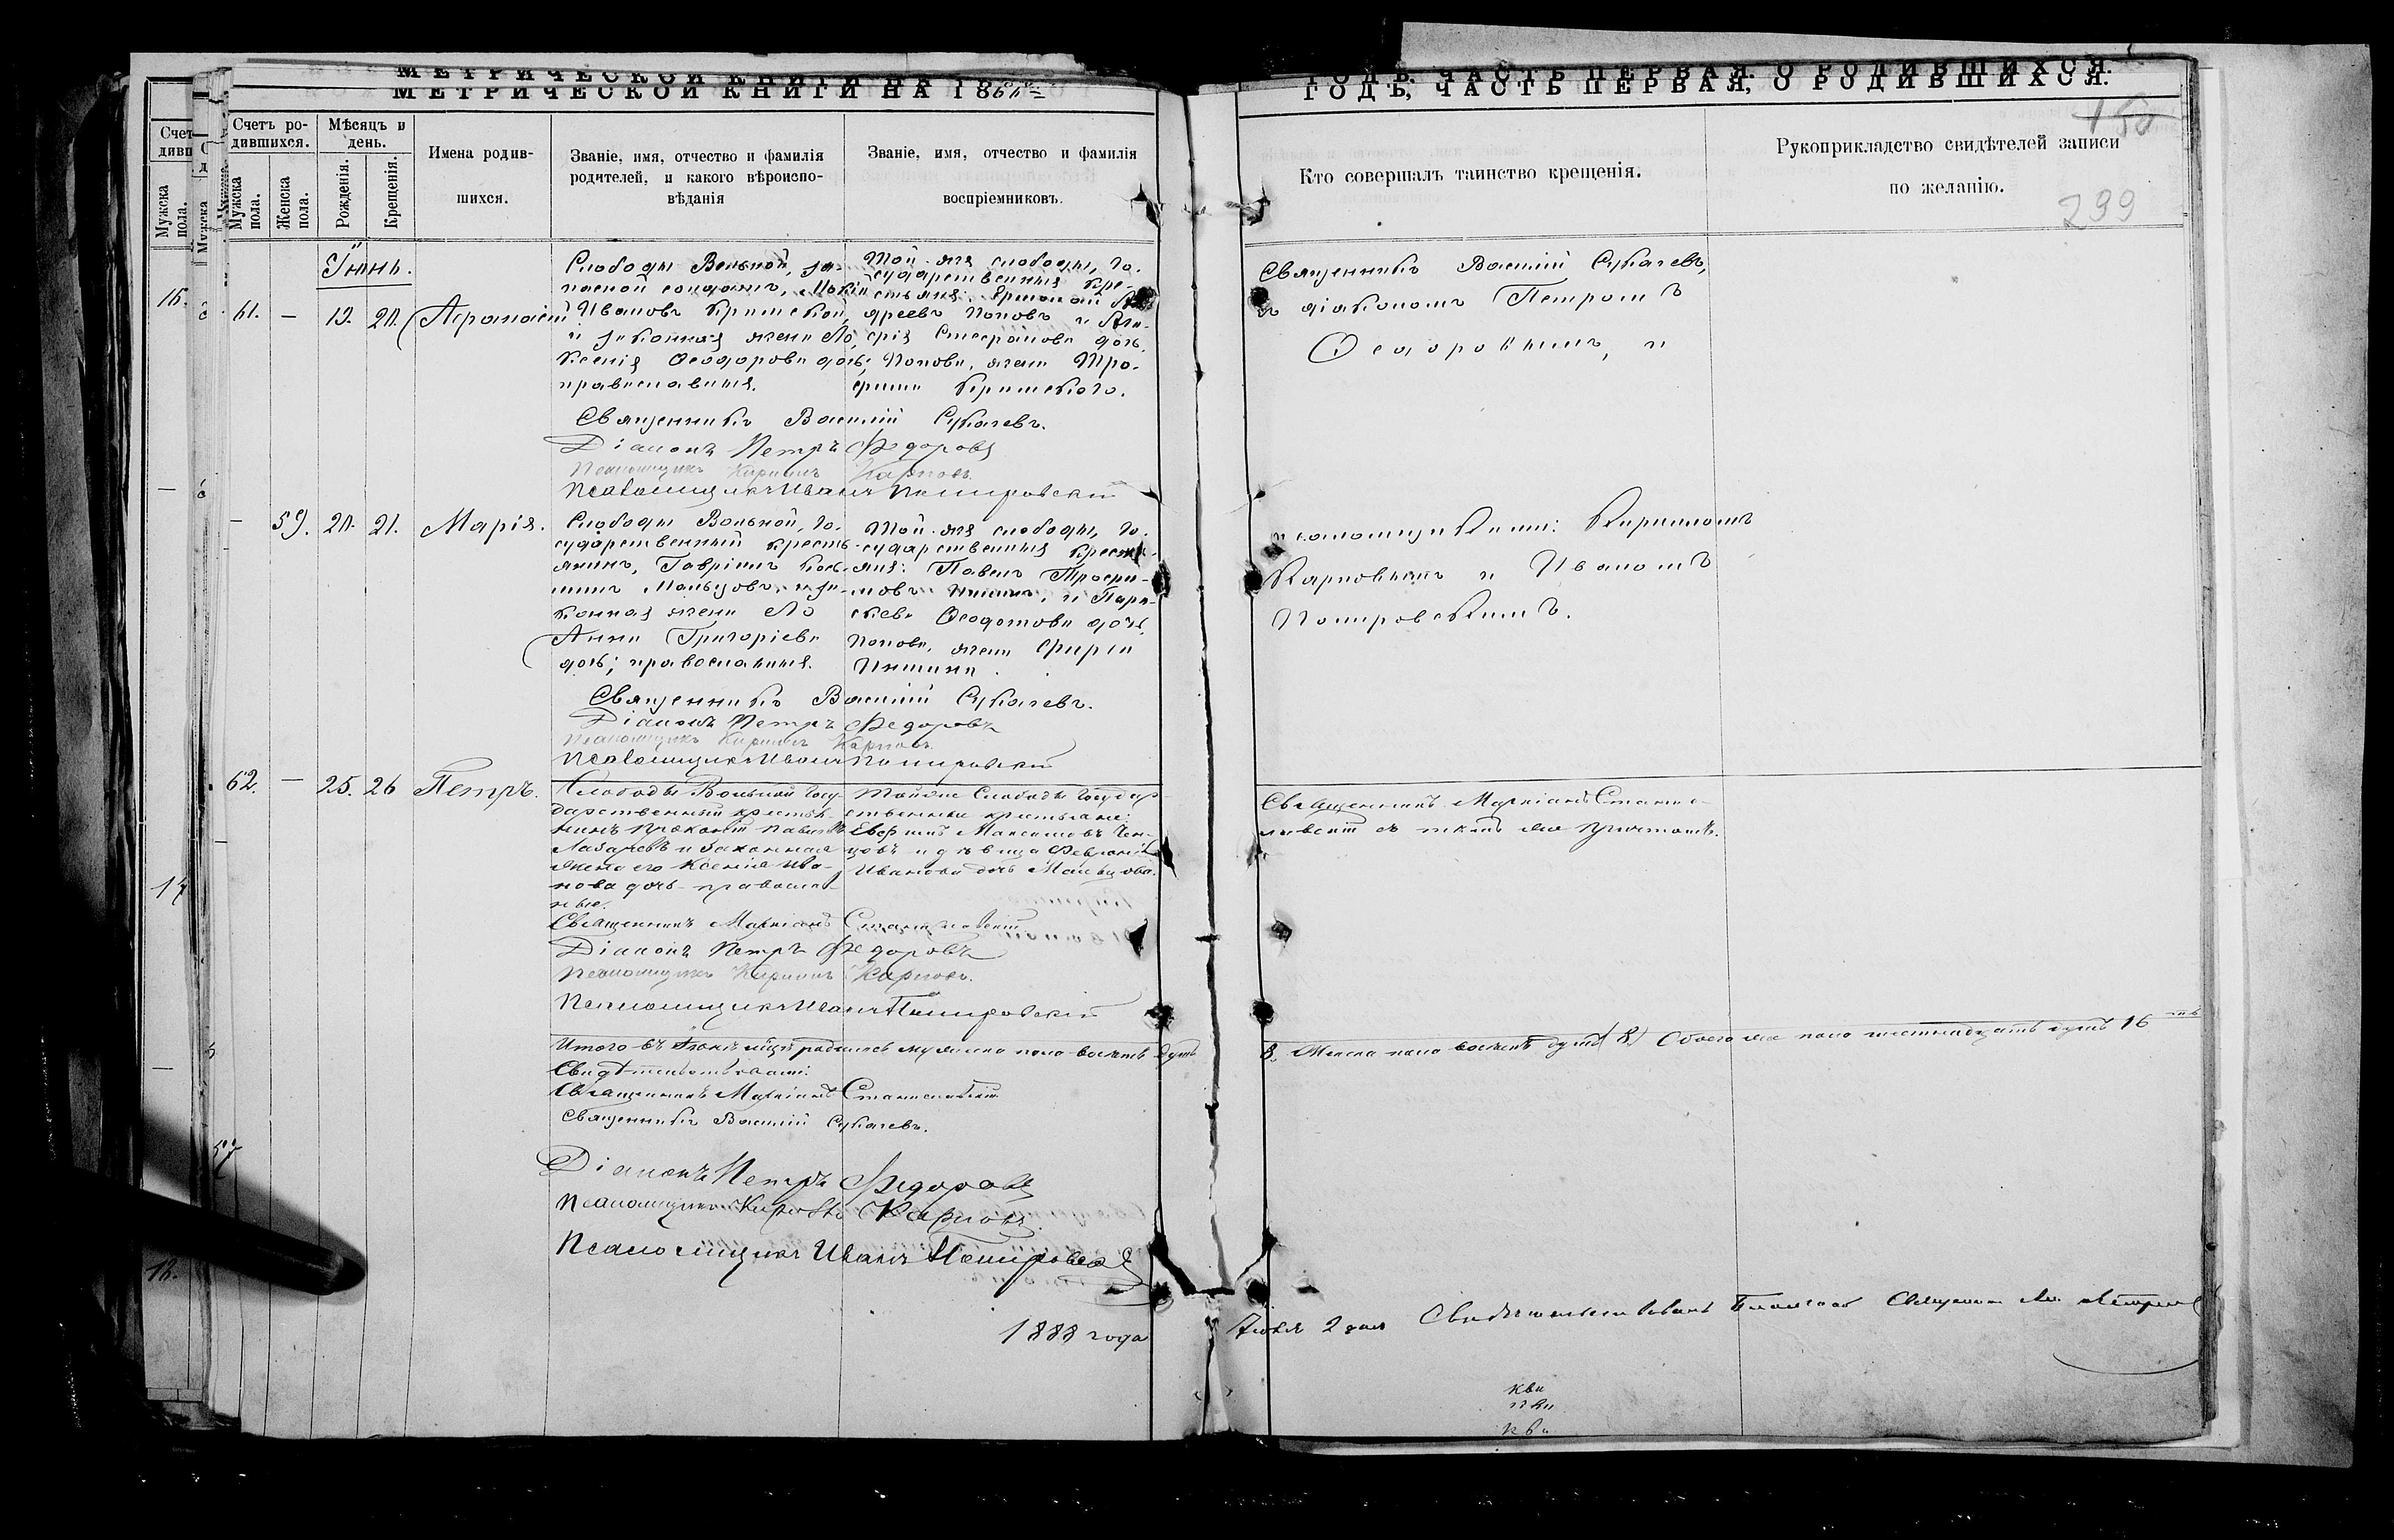 МЕТРИЧЕСКОЙ КНИГИ НА 18
ГОДЪ, ЧАСТЬ ПЕРВАЯ, О РОДИВШИХСЯ.
150
299
Счетъ ро-
дившихся.
Мужска
пола.
Женска
пола.
Мѣсяцъ и
день.
Рожденія.
Крещенія.
Имена родив-
шихся.
Званіе, имя, отчество и фамилія
родителей, и какого вѣроиспо-
вѣданія
Званіе, имя, отчество и фамилія
воспріемниковъ.
Кто совершалъ таинство крещенія.
Рукоприкладство свидѣтелей записи
по желанію.
Іюнь.
61. — 19. 20. Аѳанасій
Слободы Вольной, за-
пасной солдатъ,
Ивановъ Крымской,
и законная жена его,
Ксенія Ѳеодорова дочь;
православныя.
Той-же слободы, го-
сударственныя кре-
стьяне: Ермолай Ан-
дреевъ Поповъ и Ага-
фія Стефанова дочь,
Попова, жена Тро-
фима Крымского.
Священникъ Василій Сукачевъ,
съ діакономъ Петромъ
Ѳедоровымъ, и
Священникъ Василій Сукачевъ.
Діаконъ Петръ Ѳедоровъ
Псаломщикъ Кириллъ Карповъ.
Псаломщикъ Иванъ
— 59. 20. 21. Марія.
Слободы Вольной, го-
сударственный кресть-
янинъ, Гавріилъ Кось-
минъ Мальцовъ, и за-
конная жена его
Анна Григоріева
дочь; православныя.
Той-же слободы, го-
сударственныя кресть-
яне: Павелъ Трофи-
мовъ и Пара-
скева Ѳеодотова дочь,
Попова, жена Фирса
псаломщиками: Кирилломъ
Карповымъ и Иваномъ
Священникъ Василій Сукачевъ.
Діаконъ Петръ Ѳедоровъ
Псаломщикъ Кириллъ Карповъ.
Псаломщикъ Иванъ
62. — 25. 26 Петръ.
Слободы Вольной Госу-
дарственный крестья-
нинъ Прокопій Павловъ
Лазаревъ и законная
жена его Ксенія Ива-
нова дочь православ-
ные.
Той же Слободы Государ-
ственные крестьяне:
Евфимъ Максимовъ
и дѣвица Февронія
Иванова дочь Мальцова.
Священникъ Маркіанъ Станисла-
вскій съ тѣмъ же причтомъ.
Священникъ Маркіанъ Станиславскій
Діаконъ Петръ Ѳедоровъ
Псаломщикъ Кириллъ Карповъ.
Псаломщикъ Иванъ
Итого въ Іюнѣ мцѣ родилось мужеска пола восемь душъ
8. Женска пола восемь душъ (8) Обоего же пола шестнадцать душъ 16
Свидѣтельствовали:
Священникъ Маркіанъ Станиславскій
Священникъ Василій Сукачевъ.
Діаконъ Петръ Ѳедоровъ
Псаломщикъ Кириллъ Карповъ.
Псаломщикъ Иванъ
1888 года
Іюля 2 дня Свидѣтельствовалъ Благочин Священникъ